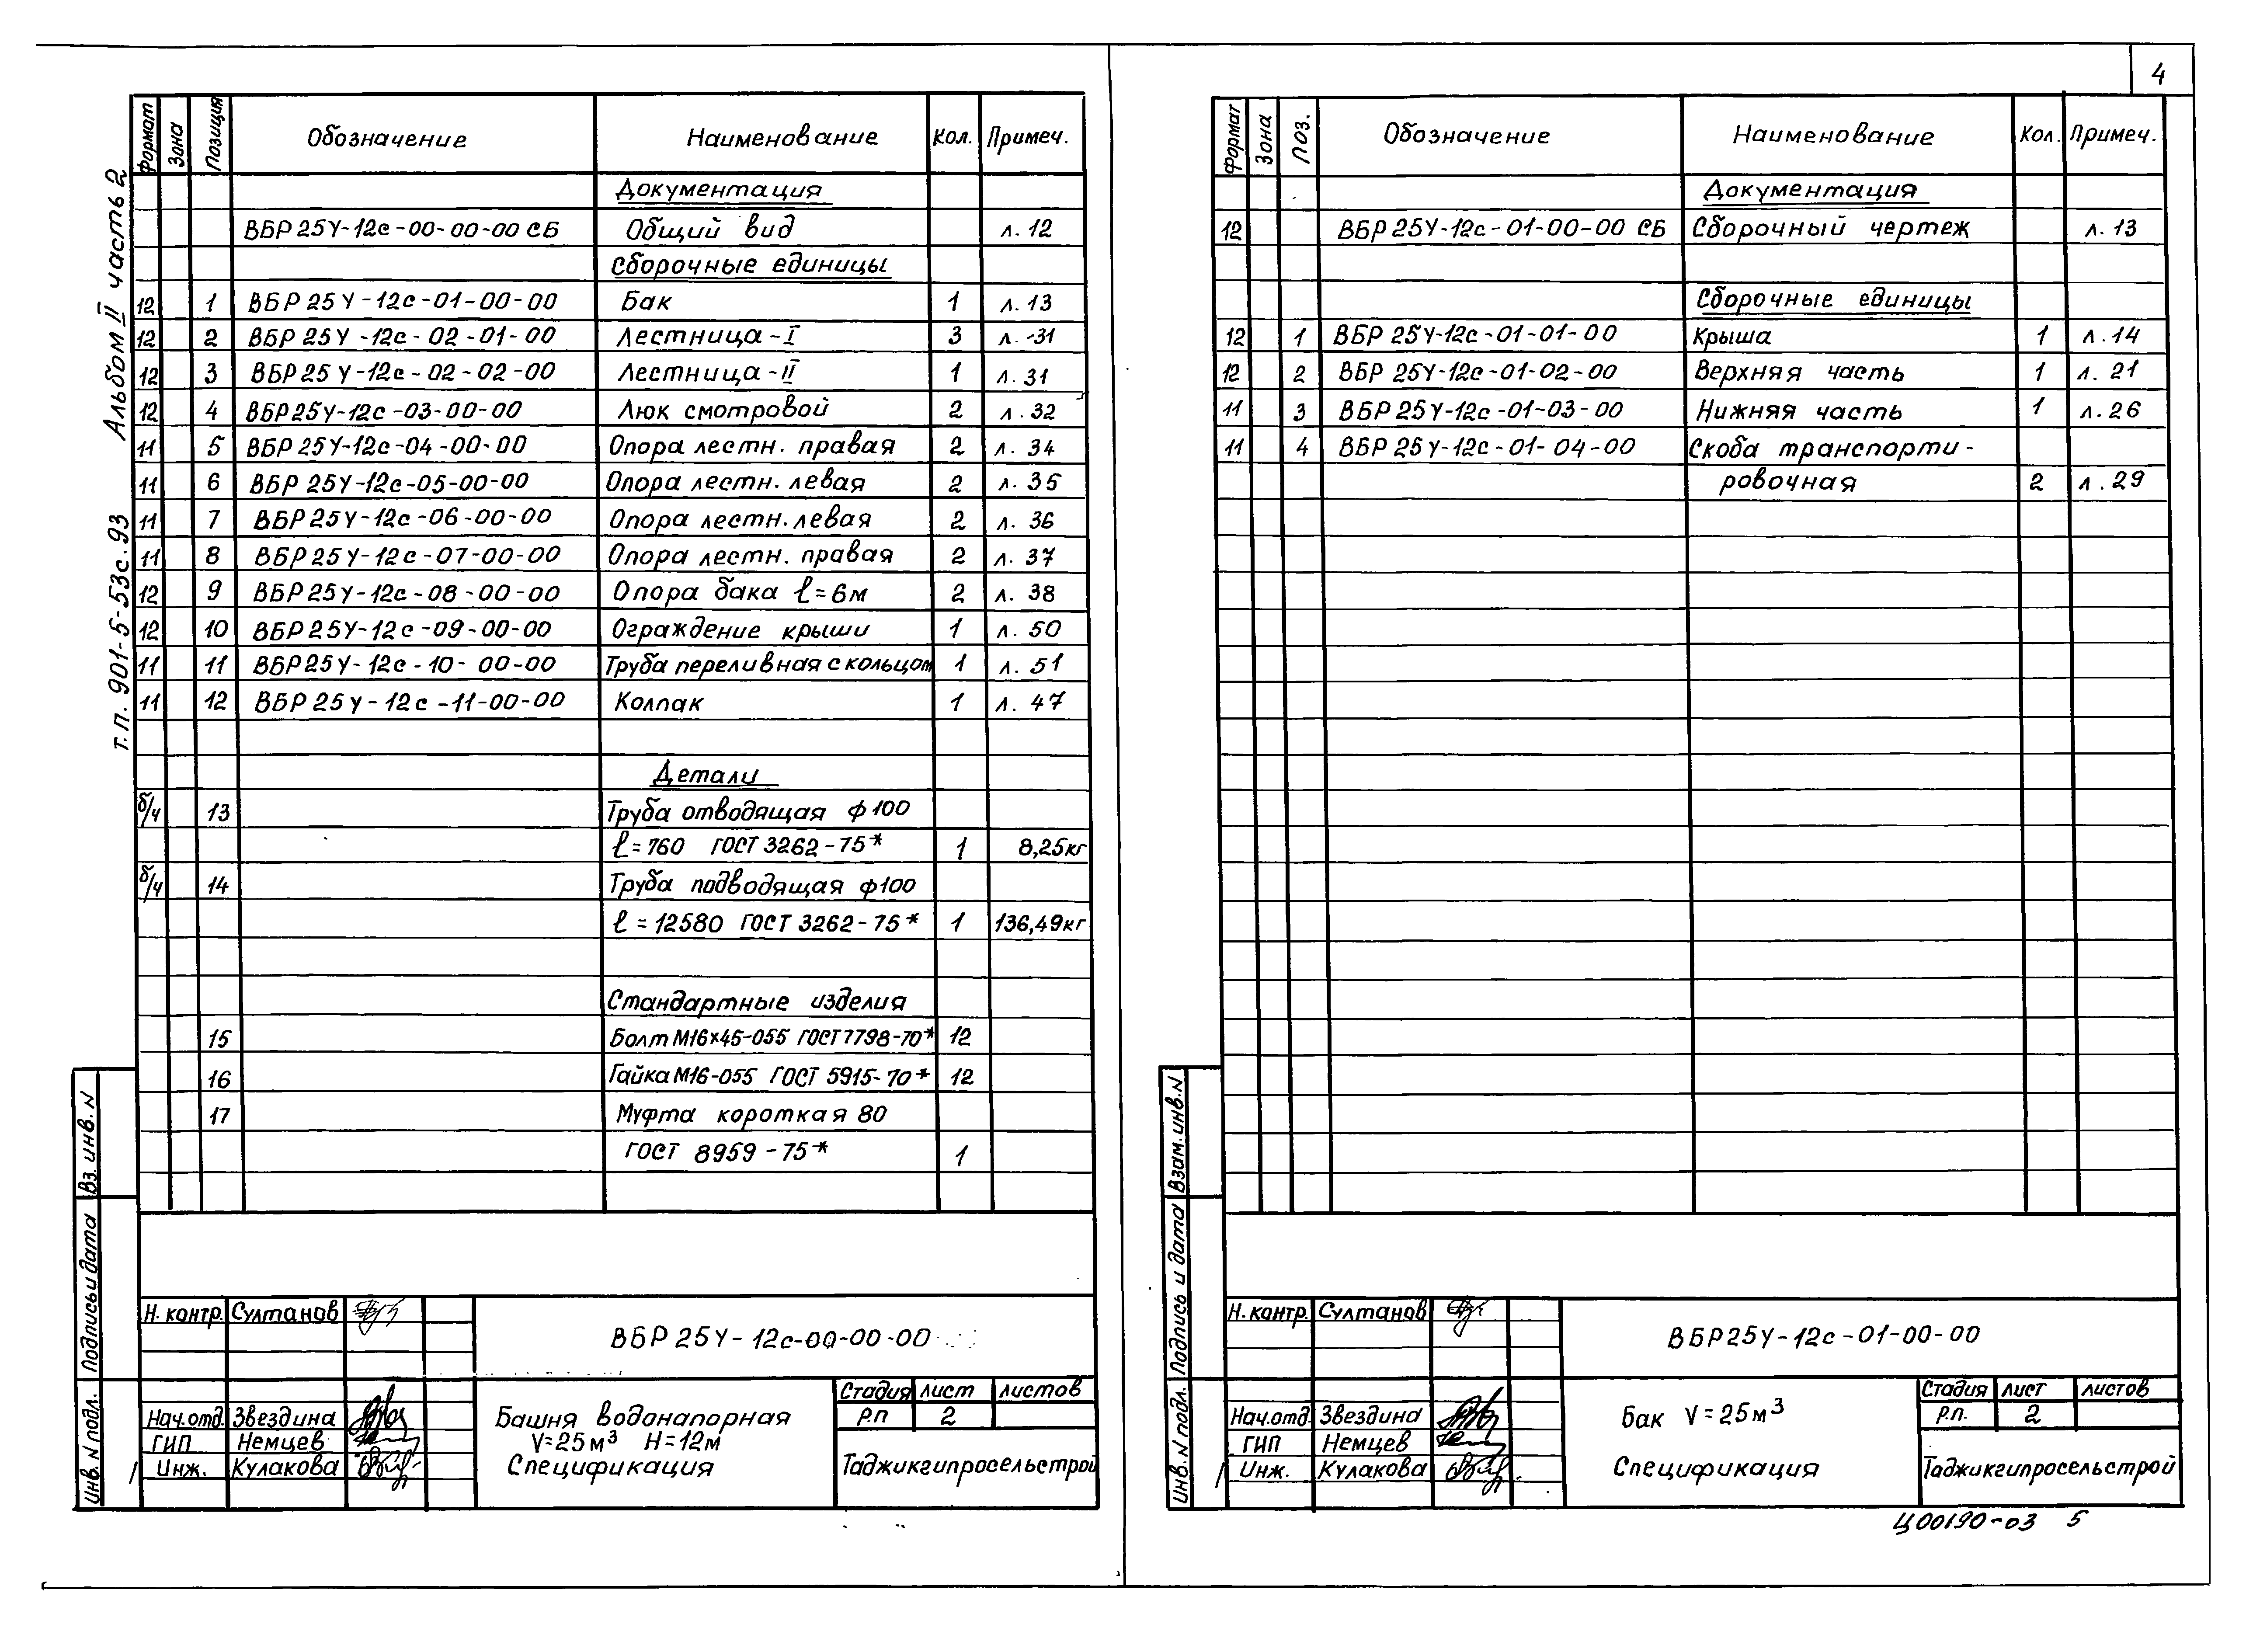 4
т.п. 901-5-53с.93 Альбом II часть 2
Формат Зона Позиция Обозначение Наименование Кол. Примеч.
Документация
ВБР 25У-12с-00-00-00 СБ Общий вид л. 12
Сборочные единицы
12 1 ВБР 25У-12с-01-00-00 Бак 1 л. 13
12 2 ВБР 25У-12с-02-01-00 Лестница-I 3 л. 31
12 3 ВБР 25У-12с-02-02-00 Лестница-II 1 л. 31
12 4 ВБР 25У-12с-03-00-00 Люк смотровой 2 л. 32
11 5 ВБР 25У-12с-04-00-00 Опора лестн. правая 2 л. 34
11 6 ВБР 25У-12с-05-00-00 Опора лестн. левая 2 л. 35
11 7 ВБР 25У-12с-06-00-00 Опора лестн. левая 2 л. 36
11 8 ВБР 25У-12с-07-00-00 Опора лестн. правая 2 л. 37
12 9 ВБР 25У-12с-08-00-00 Опора бака ℓ=6м 2 л. 38
12 10 ВБР 25У-12с-09-00-00 Ограждение крыши 1 л. 50
11 11 ВБР 25У-12с-10-00-00 Труба переливная с кольцом 1 л. 51
11 12 ВБР 25У-12с-11-00-00 Колпак 1 л. 47
Детали
б/ч 13 Труба отводящая ф100
ℓ=760 ГОСТ 3262-75* 1 8,25кг
б/ч 14 Труба подводящая ф100
ℓ=12580 ГОСТ 3262-75* 1 136,49кг
Стандартные изделия
15 Болт М16х45-055 ГОСТ 7798-70* 12
16 Гайка М16-055 ГОСТ 5915-70* 12
17 Муфта короткая 80
ГОСТ 8959-75* 1
Вз. инв. N
Подпись и дата
Инв. N подл.
Н. контр. Султанов
ВБР 25У-12с-00-00-00
Нач.отд. Звездина
ГИП Немцев
Инж. Кулакова
Башня водонапорная
V=25м³ Н=12м
Спецификация
Стадия лист листов
Р.п 2
Таджикгипросельстрой
Формат Зона Поз. Обозначение Наименование Кол. Примеч.
Документация
12 ВБР 25У-12с-01-00-00 СБ Сборочный чертеж л. 13
Сборочные единицы
12 1 ВБР 25У-12с-01-01-00 Крыша 1 л. 14
12 2 ВБР 25У-12с-01-02-00 Верхняя часть 1 л. 21
11 3 ВБР 25У-12с-01-03-00 Нижняя часть 1 л. 26
11 4 ВБР 25У-12с-01-04-00 Скоба транспорти-
ровочная 2 л. 29
Взам. инв. N
Подпись и дата
Инв. N подл.
Н. контр. Султанов
ВБР 25У-12с-01-00-00
Нач.отд. Звездина
ГИП Немцев
Инж. Кулакова
Бак V=25м³
Спецификация
Стадия лист листов
Р.п. 2
Таджикгипросельстрой
Ц00190-03 5